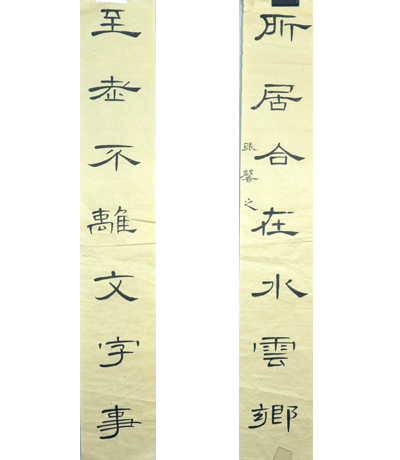 所居合在水雲鄉
張馨之
至老不離文字事